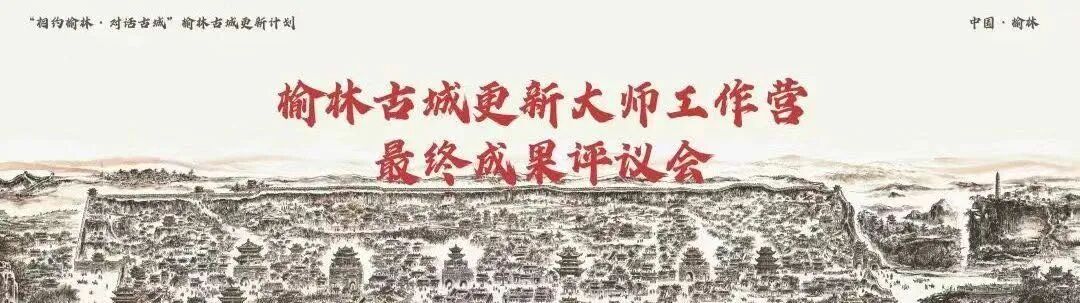 “相约榆林·对话古城”榆林古城更新计划
中国·榆林
榆林古城更新大师工作营
最终成果评议会